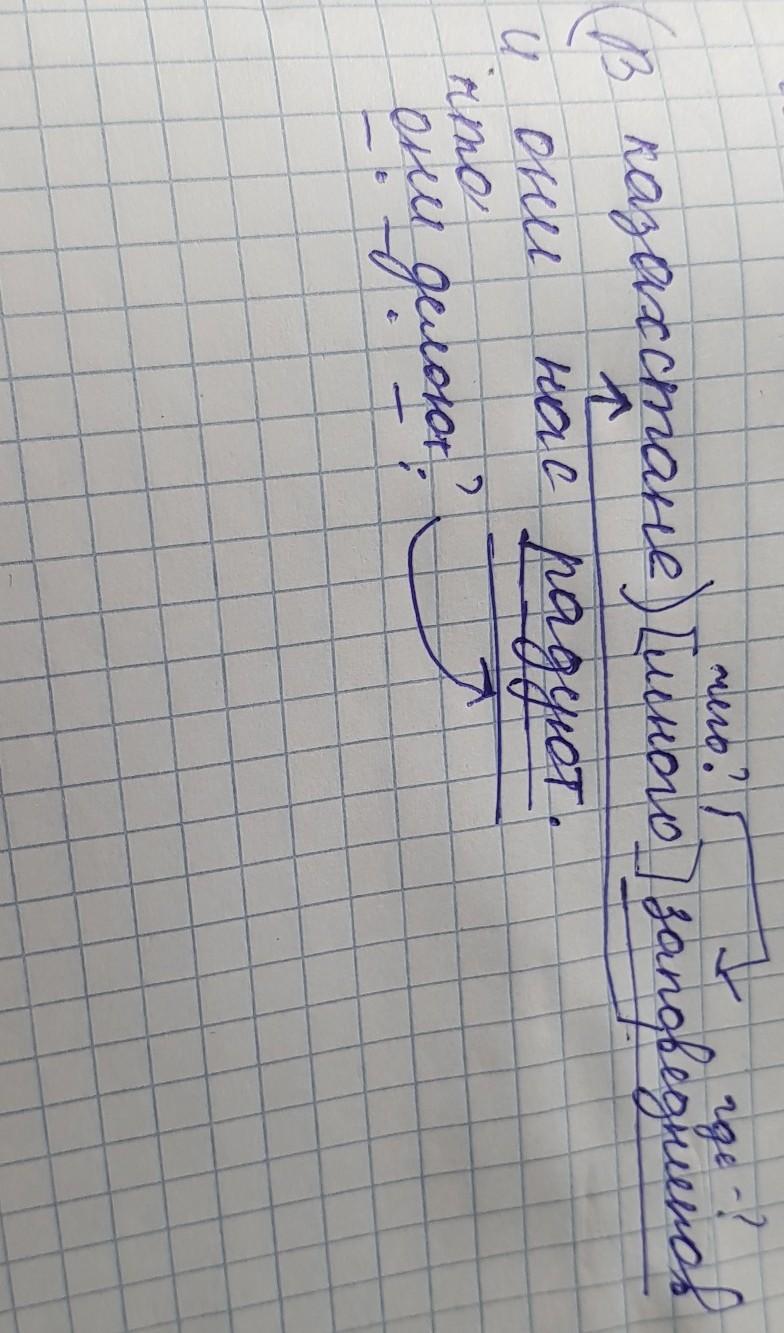 чего? где-?
(В казахстане) [много] заповедников
и они нас радуют.
что
они делают?